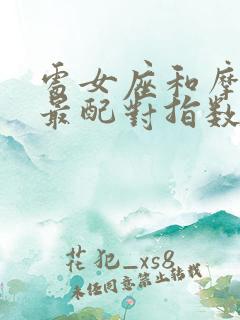 處女座和摩
最配對指数
花犯_xs8
未经同意禁止转载